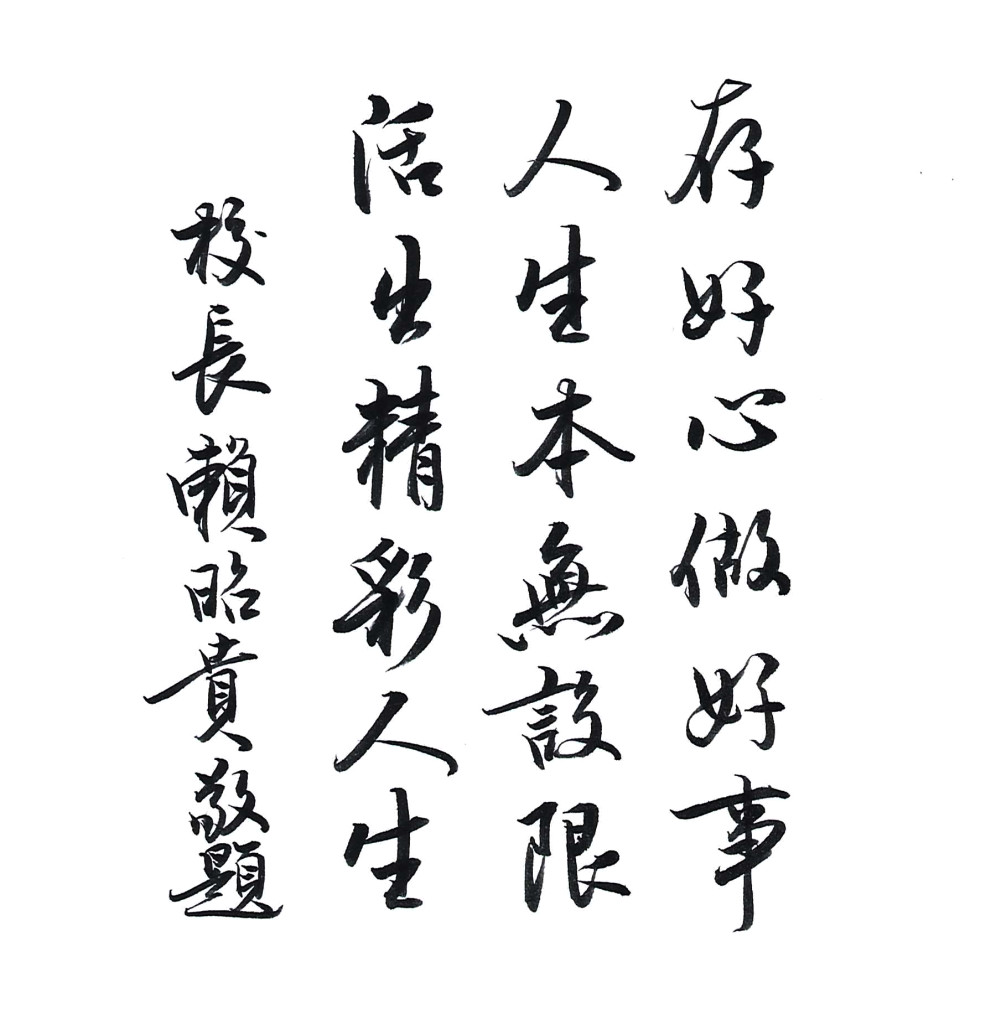 存好心做好事
人生本無設限
活出精彩人生
校長賴昭貴敬題